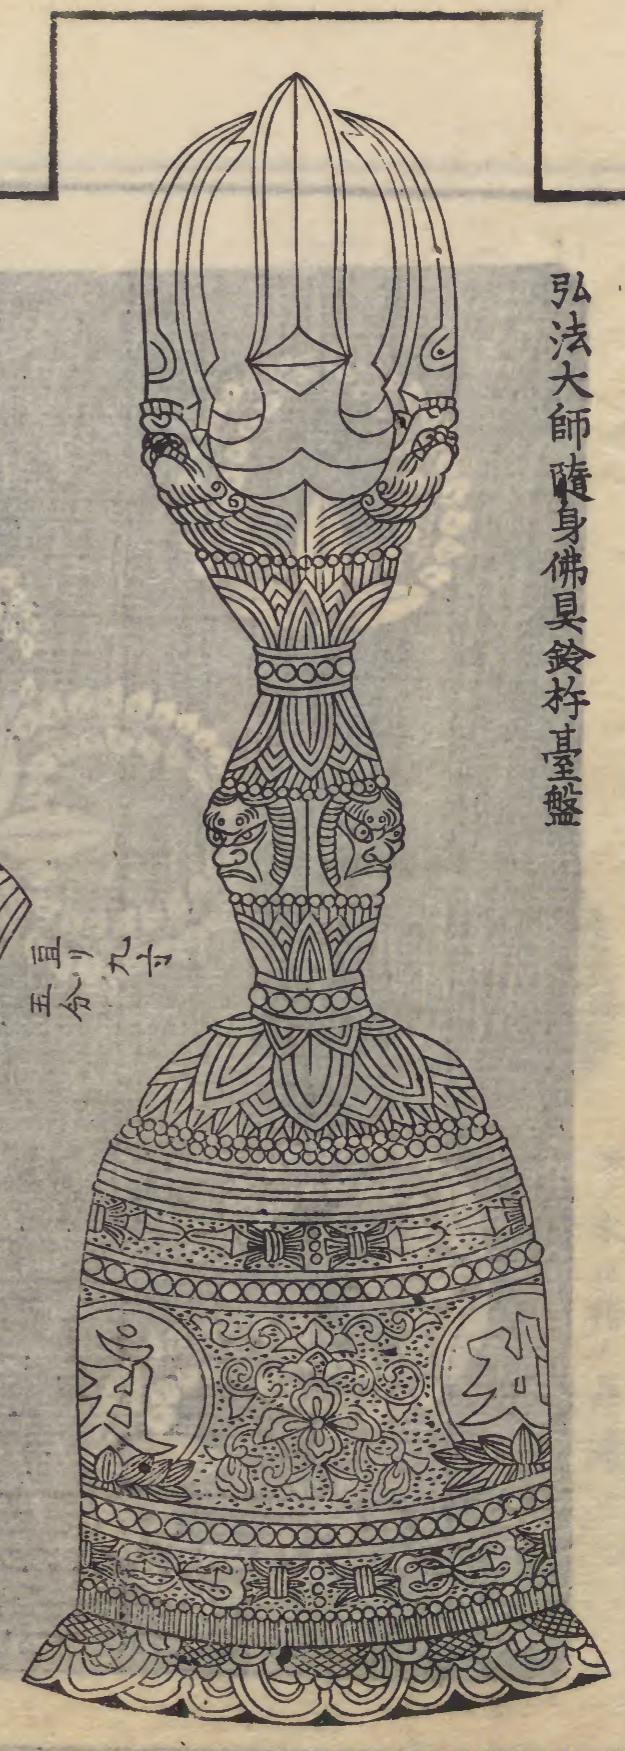 弘法大師隨身佛具鈴杵臺盤
亘リ九寸
五分